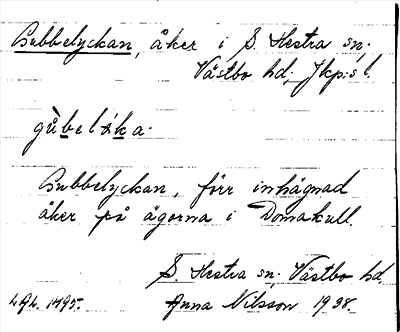 Gubbelyckan, åker i S. Hestra sn;
Västbo hd; Jkp:s l.
gùbelyka.
Gubbelyckan, förr inhägnad
åker på ägorna i Domakull.
S. Hestra sn; Västbo hd.
Anna Nilsson 1938.